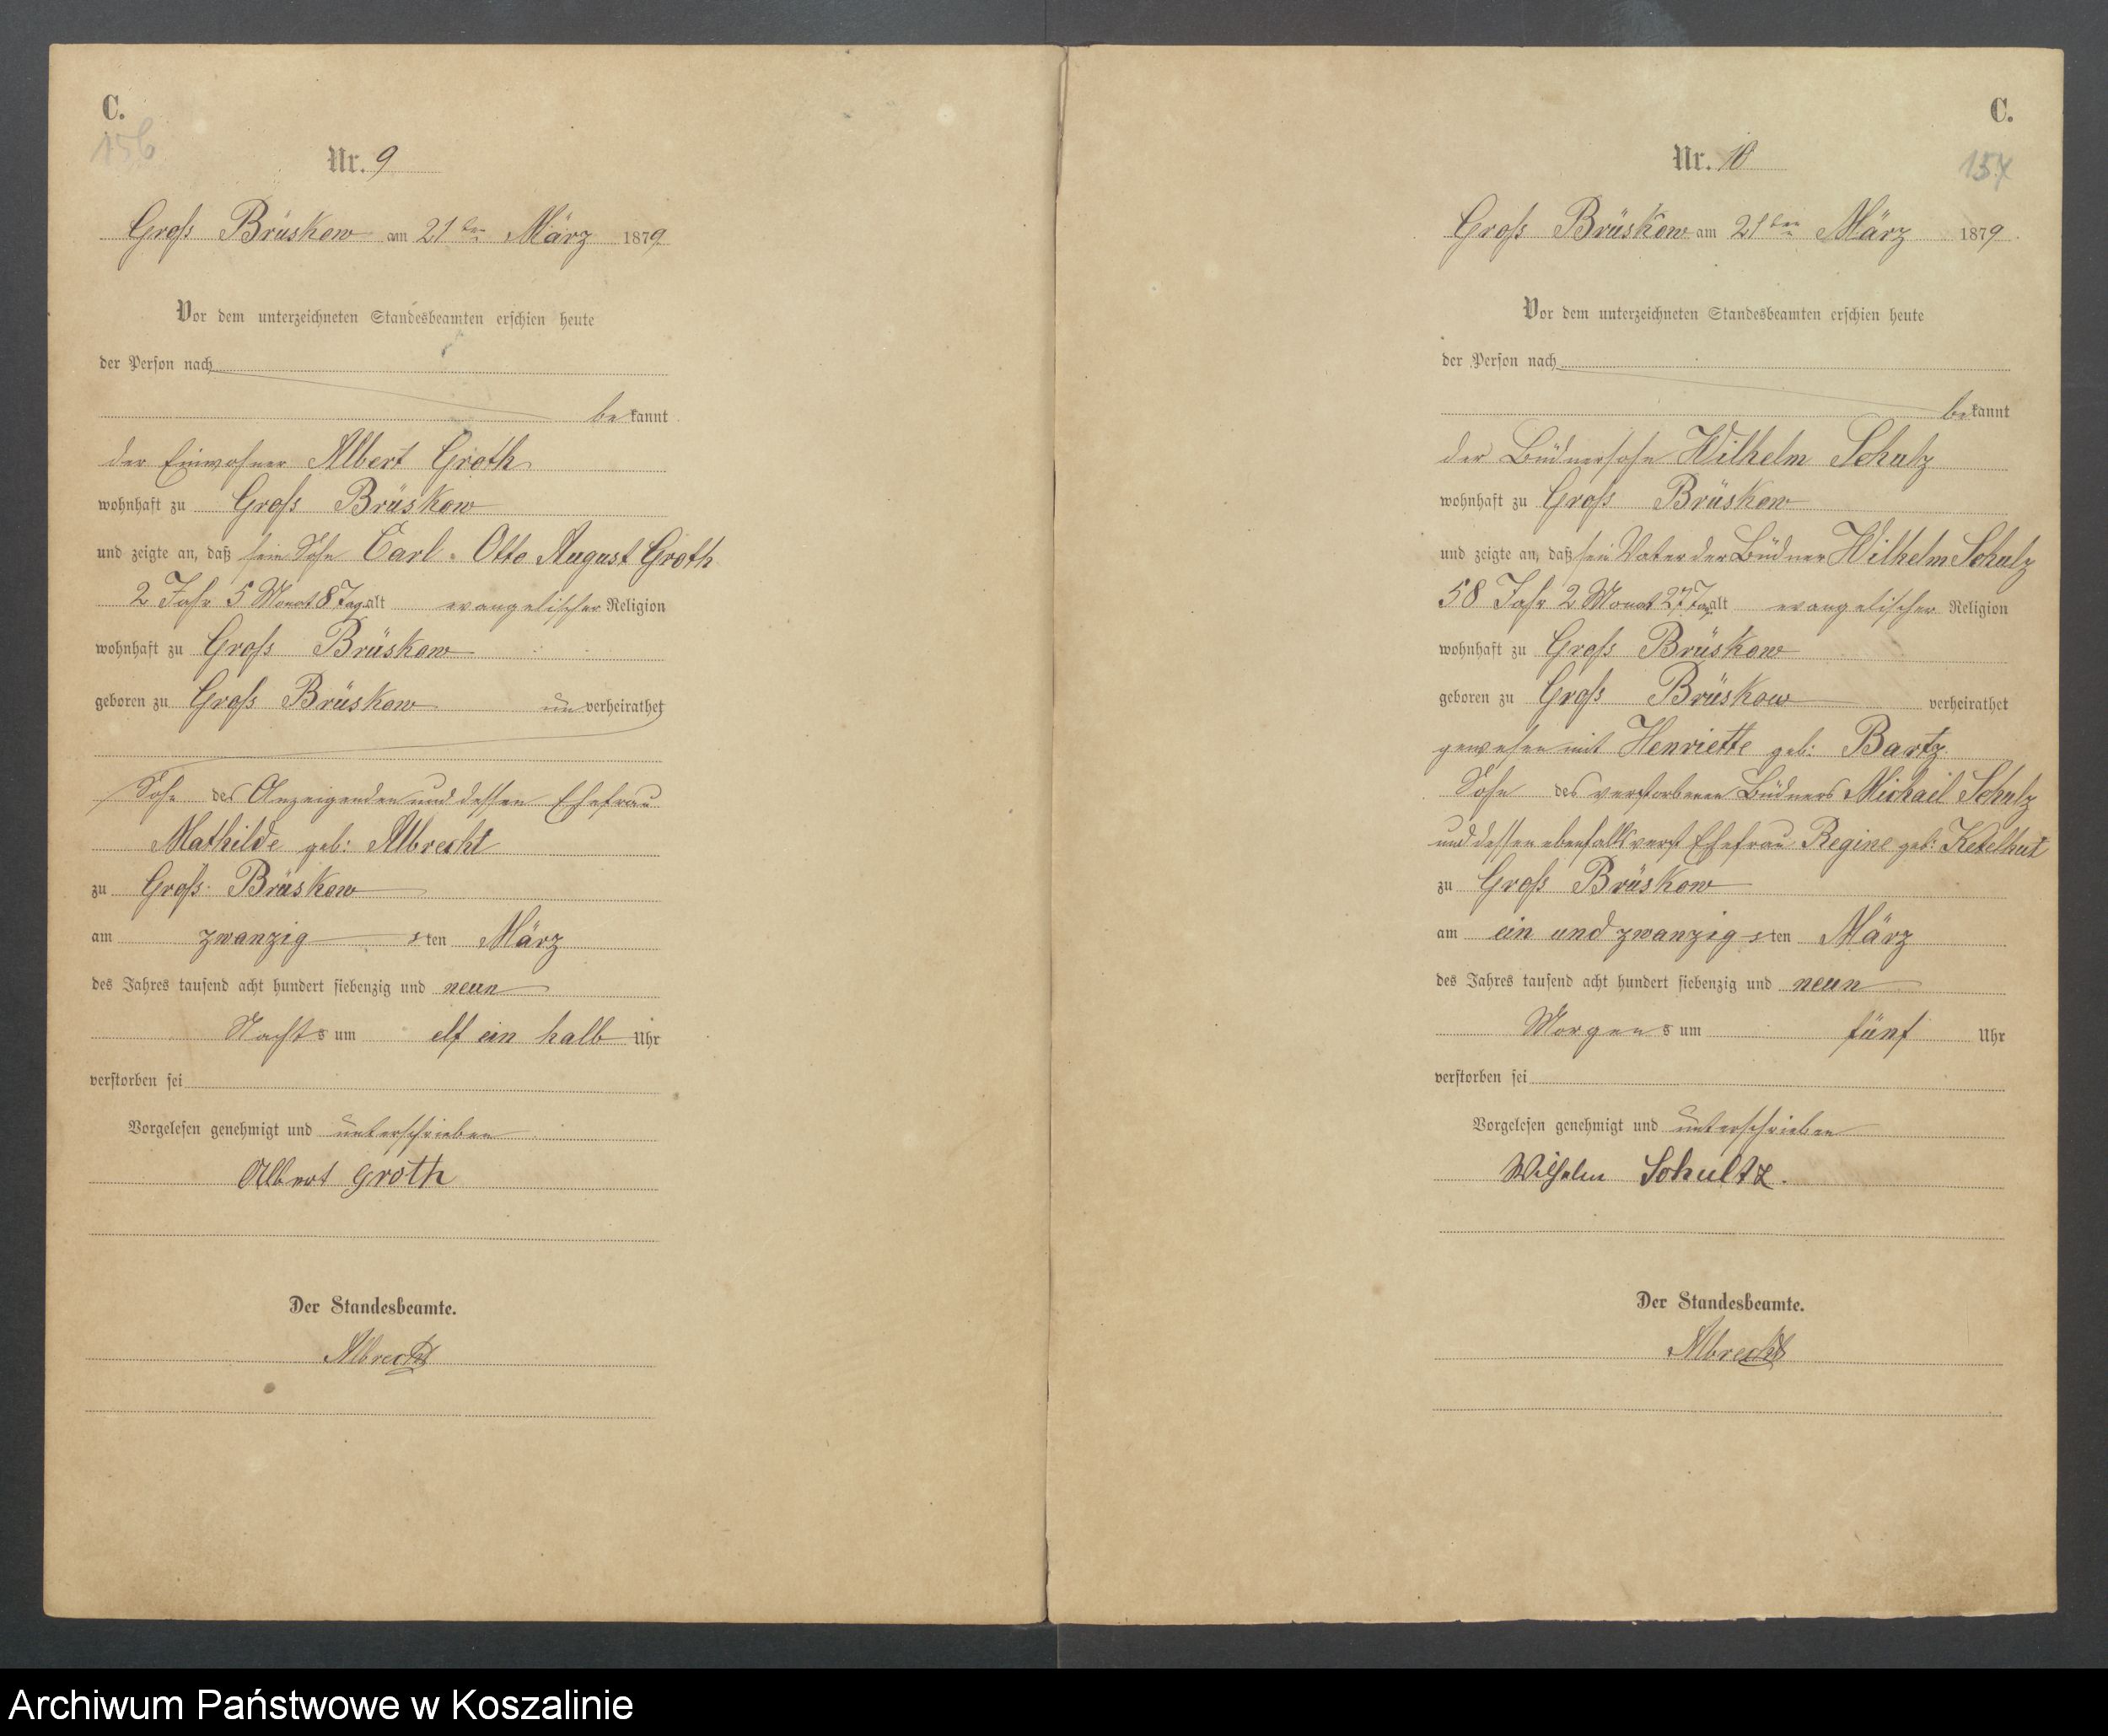 C.
156
Nr. 9
Groß Brüskow am 21ten März 1879
Vor dem unterzeichneten Standesbeamten erschien heute
der Person nach
bekannt
der Einwohner Albert Groth
wohnhaft zu Groß Brüskow
und zeigte an, daß sein Sohn Carl Otto August Groth
2 Jahr 5 Monat 8 Tag alt evangelischer Religion
wohnhaft zu Groß Brüskow
geboren zu Groß Brüskow unverheirathet
Sohn des Anzeigenden und dessen Ehefrau
Mathilde geb: Albrecht
zu Groß Brüskow
am zwanzigsten März
des Jahres tausend acht hundert siebenzig und neun
Nachts um elf ein halb Uhr
verstorben sei
Vorgelesen genehmigt und unterschrieben
Albert Groth
Der Standesbeamte.
Albrecht
C.
157
Nr. 10
Groß Brüskow am 21ten März 1879
Vor dem unterzeichneten Standesbeamten erschien heute
der Person nach
bekannt
der Büdnersohn Wilhelm Schulz
wohnhaft zu Groß Brüskow
und zeigte an, daß sein Vater der Büdner Wilhelm Schulz
58 Jahr 2 Monat 27 Tag alt evangelischer Religion
wohnhaft zu Groß Brüskow
geboren zu Groß Brüskow verheirathet
gewesen mit Henriette geb: Bartz
Sohn des verstorbenen Büdners Michael Schulz
und dessen ebenfalls verst Ehefrau Regine geb: Ketelhut
zu Groß Brüskow
am ein und zwanzigsten März
des Jahres tausend acht hundert siebenzig und neun
Morgens um fünf Uhr
verstorben sei
Vorgelesen genehmigt und unterschrieben
Wilhelm Schultz.
Der Standesbeamte.
Albrecht
Archiwum Państwowe w Koszalinie